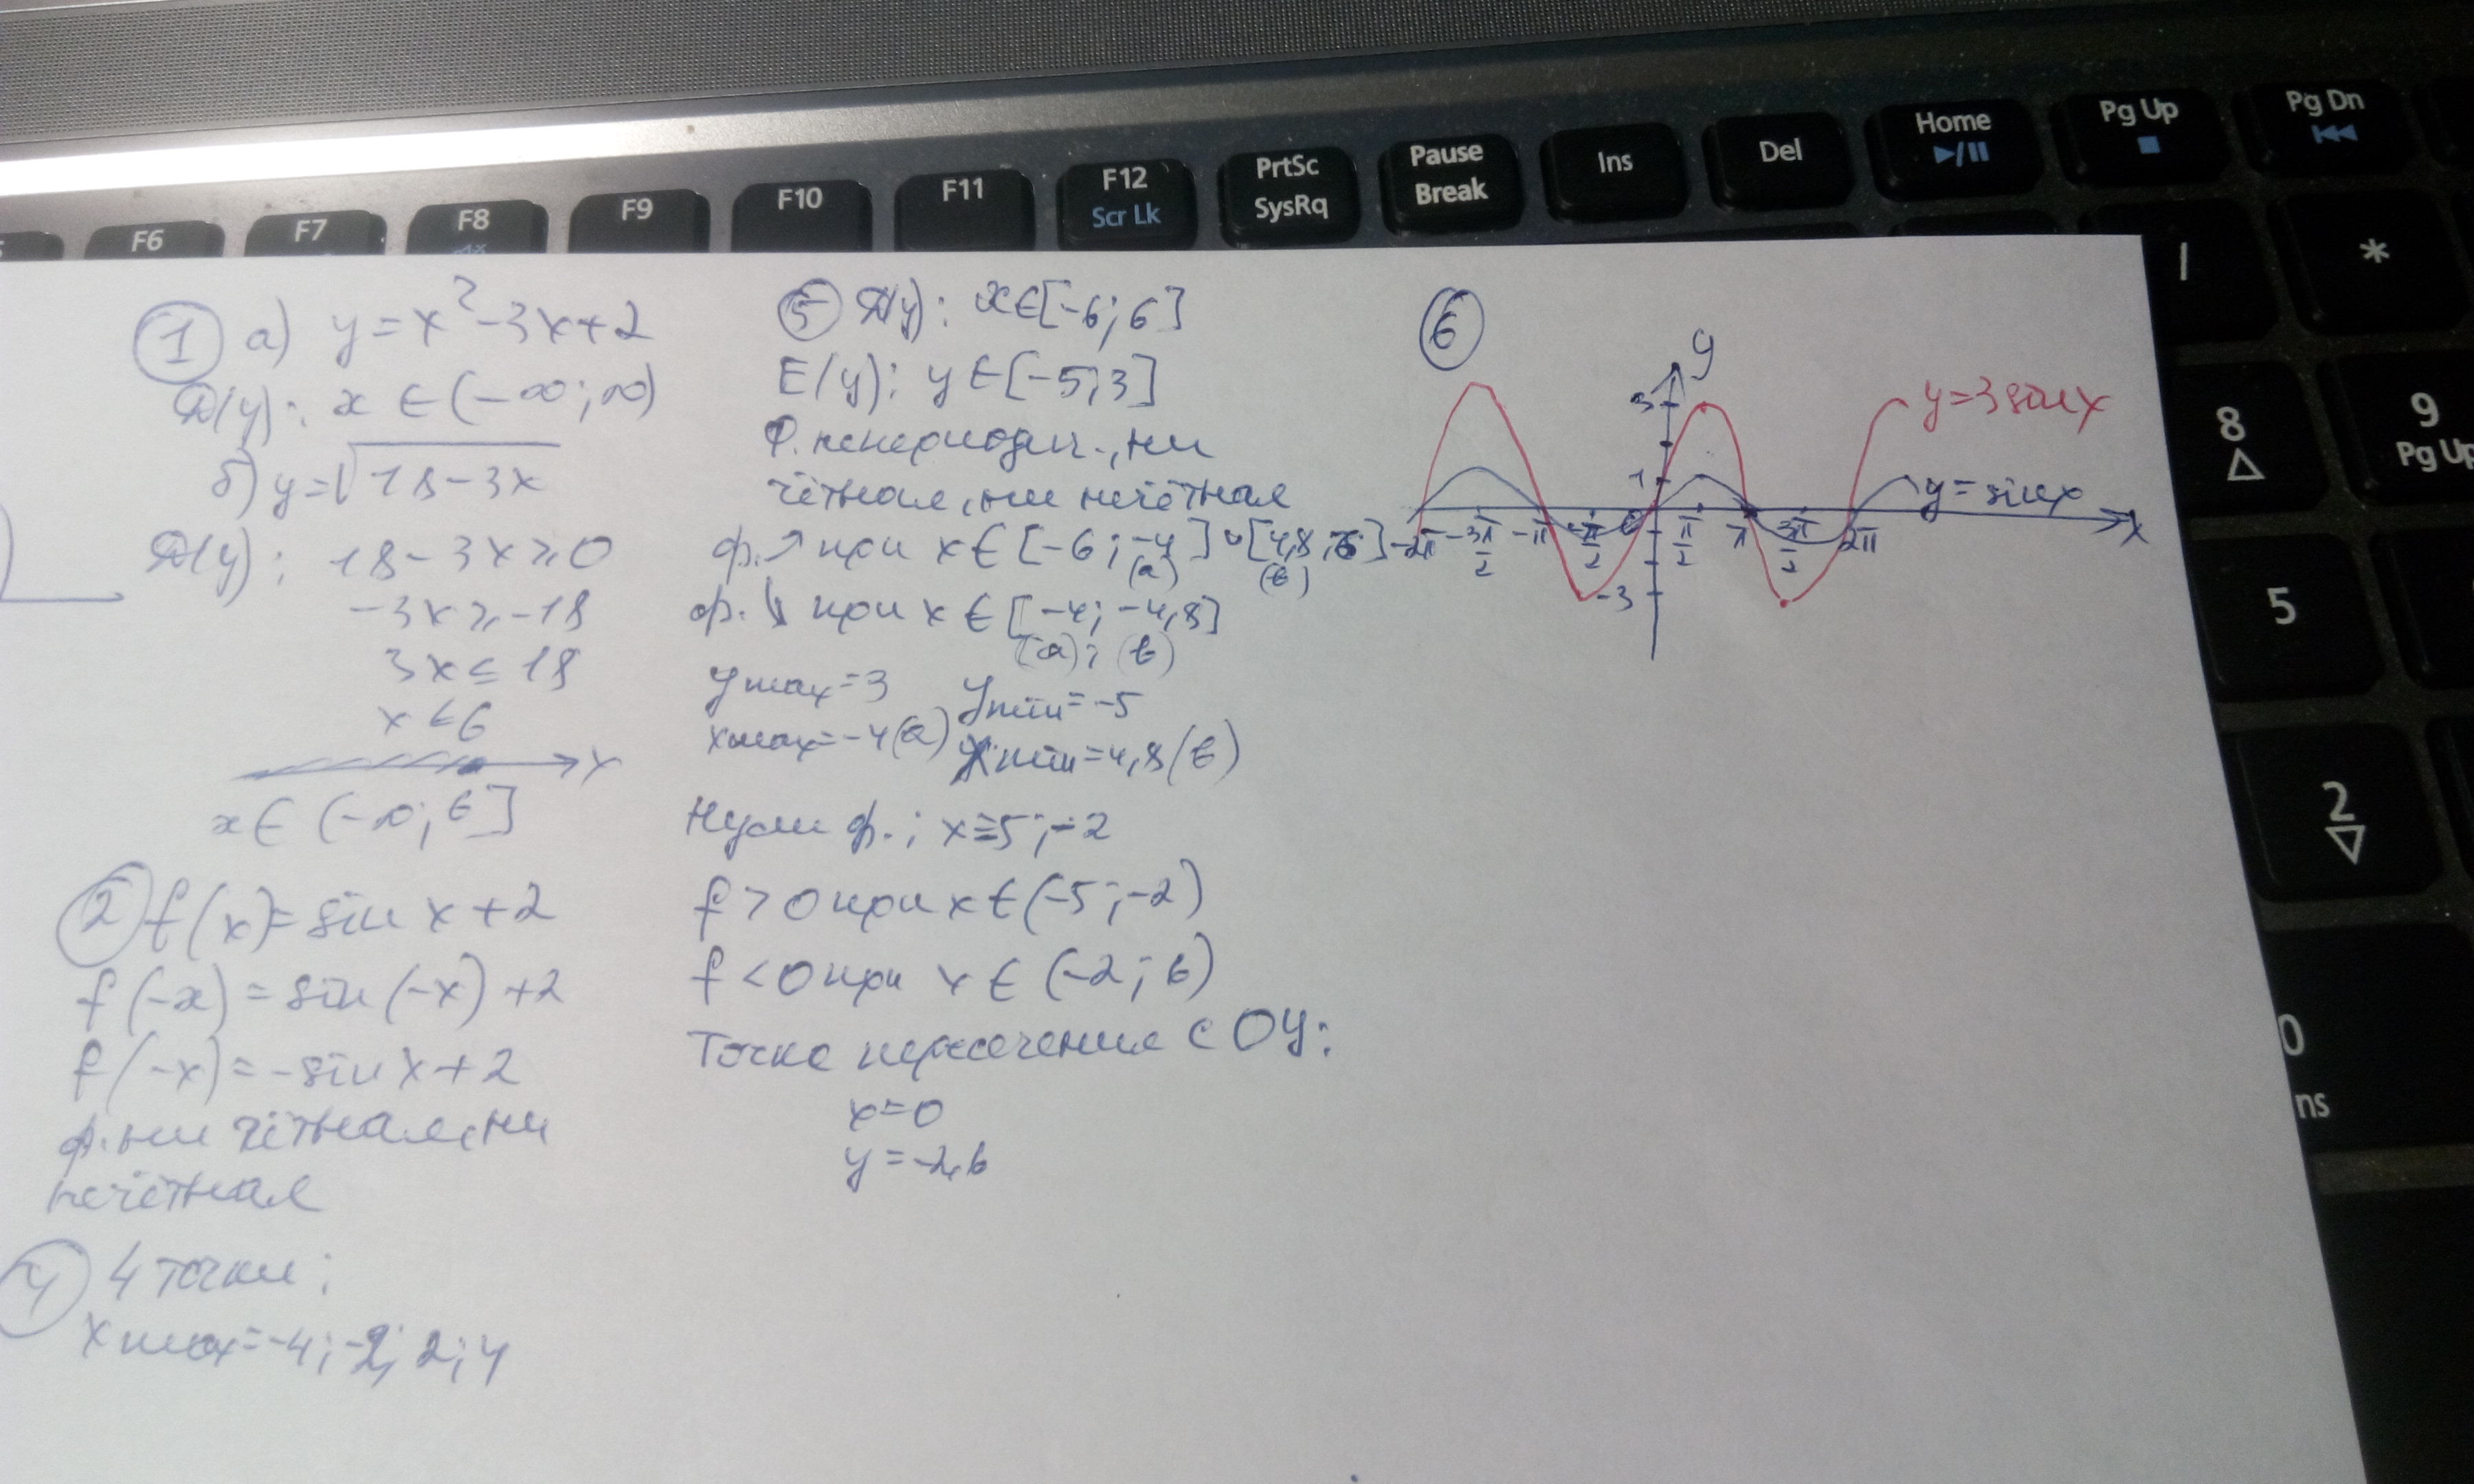 F6
F7
F8
F9
F10
F11
F12
Scr Lk
PrtSc
SysRq
Pause
Break
Ins
Del
Home
Pg Up
Pg Dn
/
*
8
9
Pg Up
5
2
0
ns
① а) y=x²-3x+2
Д(y): x∈(-∞;∞)
б) y=√18-3x
Д(y): 18-3x≥0
-3x≥-18
3x≤18
x≤6
x
x∈(-∞;6]
② f(x)=sin x+2
f(-x)=sin(-x)+2
f(-x)=-sin x+2
ф. ни чётная, ни
нечётная
④ 4 точки:
xmax=-4;-2;2;4
⑤ Д(y): x∈[-6;6]
E(y): y∈[-5;3]
Ф. непериодич., ни
чётная, ни нечётная
ф.↗ при x∈[-6;-4]∪[4,8;6]
(a) (в)
ф.↘ при x∈[-4;-4,8]
(a); (в)
ymax=3 ymin=-5
xmax=-4(a) xmin=4,8(в)
Нули ф.: x=-5;-2
f>0 при x∈(-5;-2)
f<0 при x∈(-2;6)
Точка пересечения с OY:
x=0
y=-2,6
⑥
y
3
y=3sinx
1
y=sinx
-2π -3π/2 -π -π/2 0 π/2 π 3π/2 2π x
-3